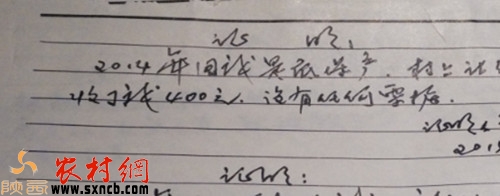 证明
2014年因我是低保户,村上让
收了我400元.没有任何票据.
证明人:
201
证明:
陕西
农村網
www.sxncb.com